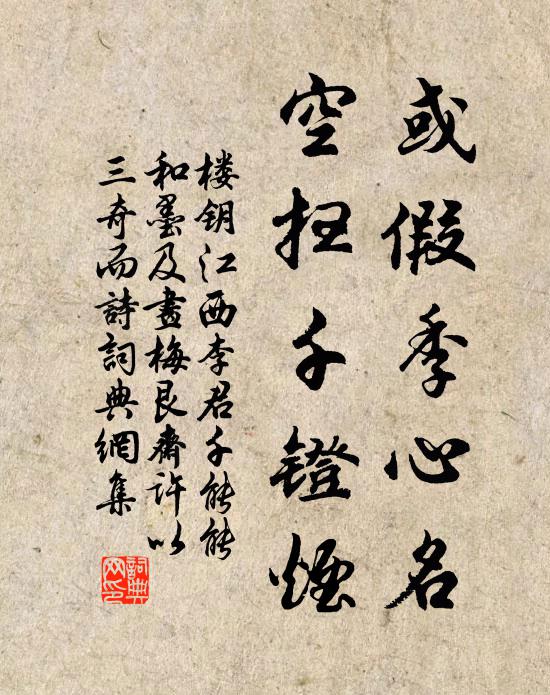 或假季心名
空扫千镫煙
楼钥江西李君千能能
和墨及畫梅艮齋许以
三奇而詩詞典網集
詞典
网印